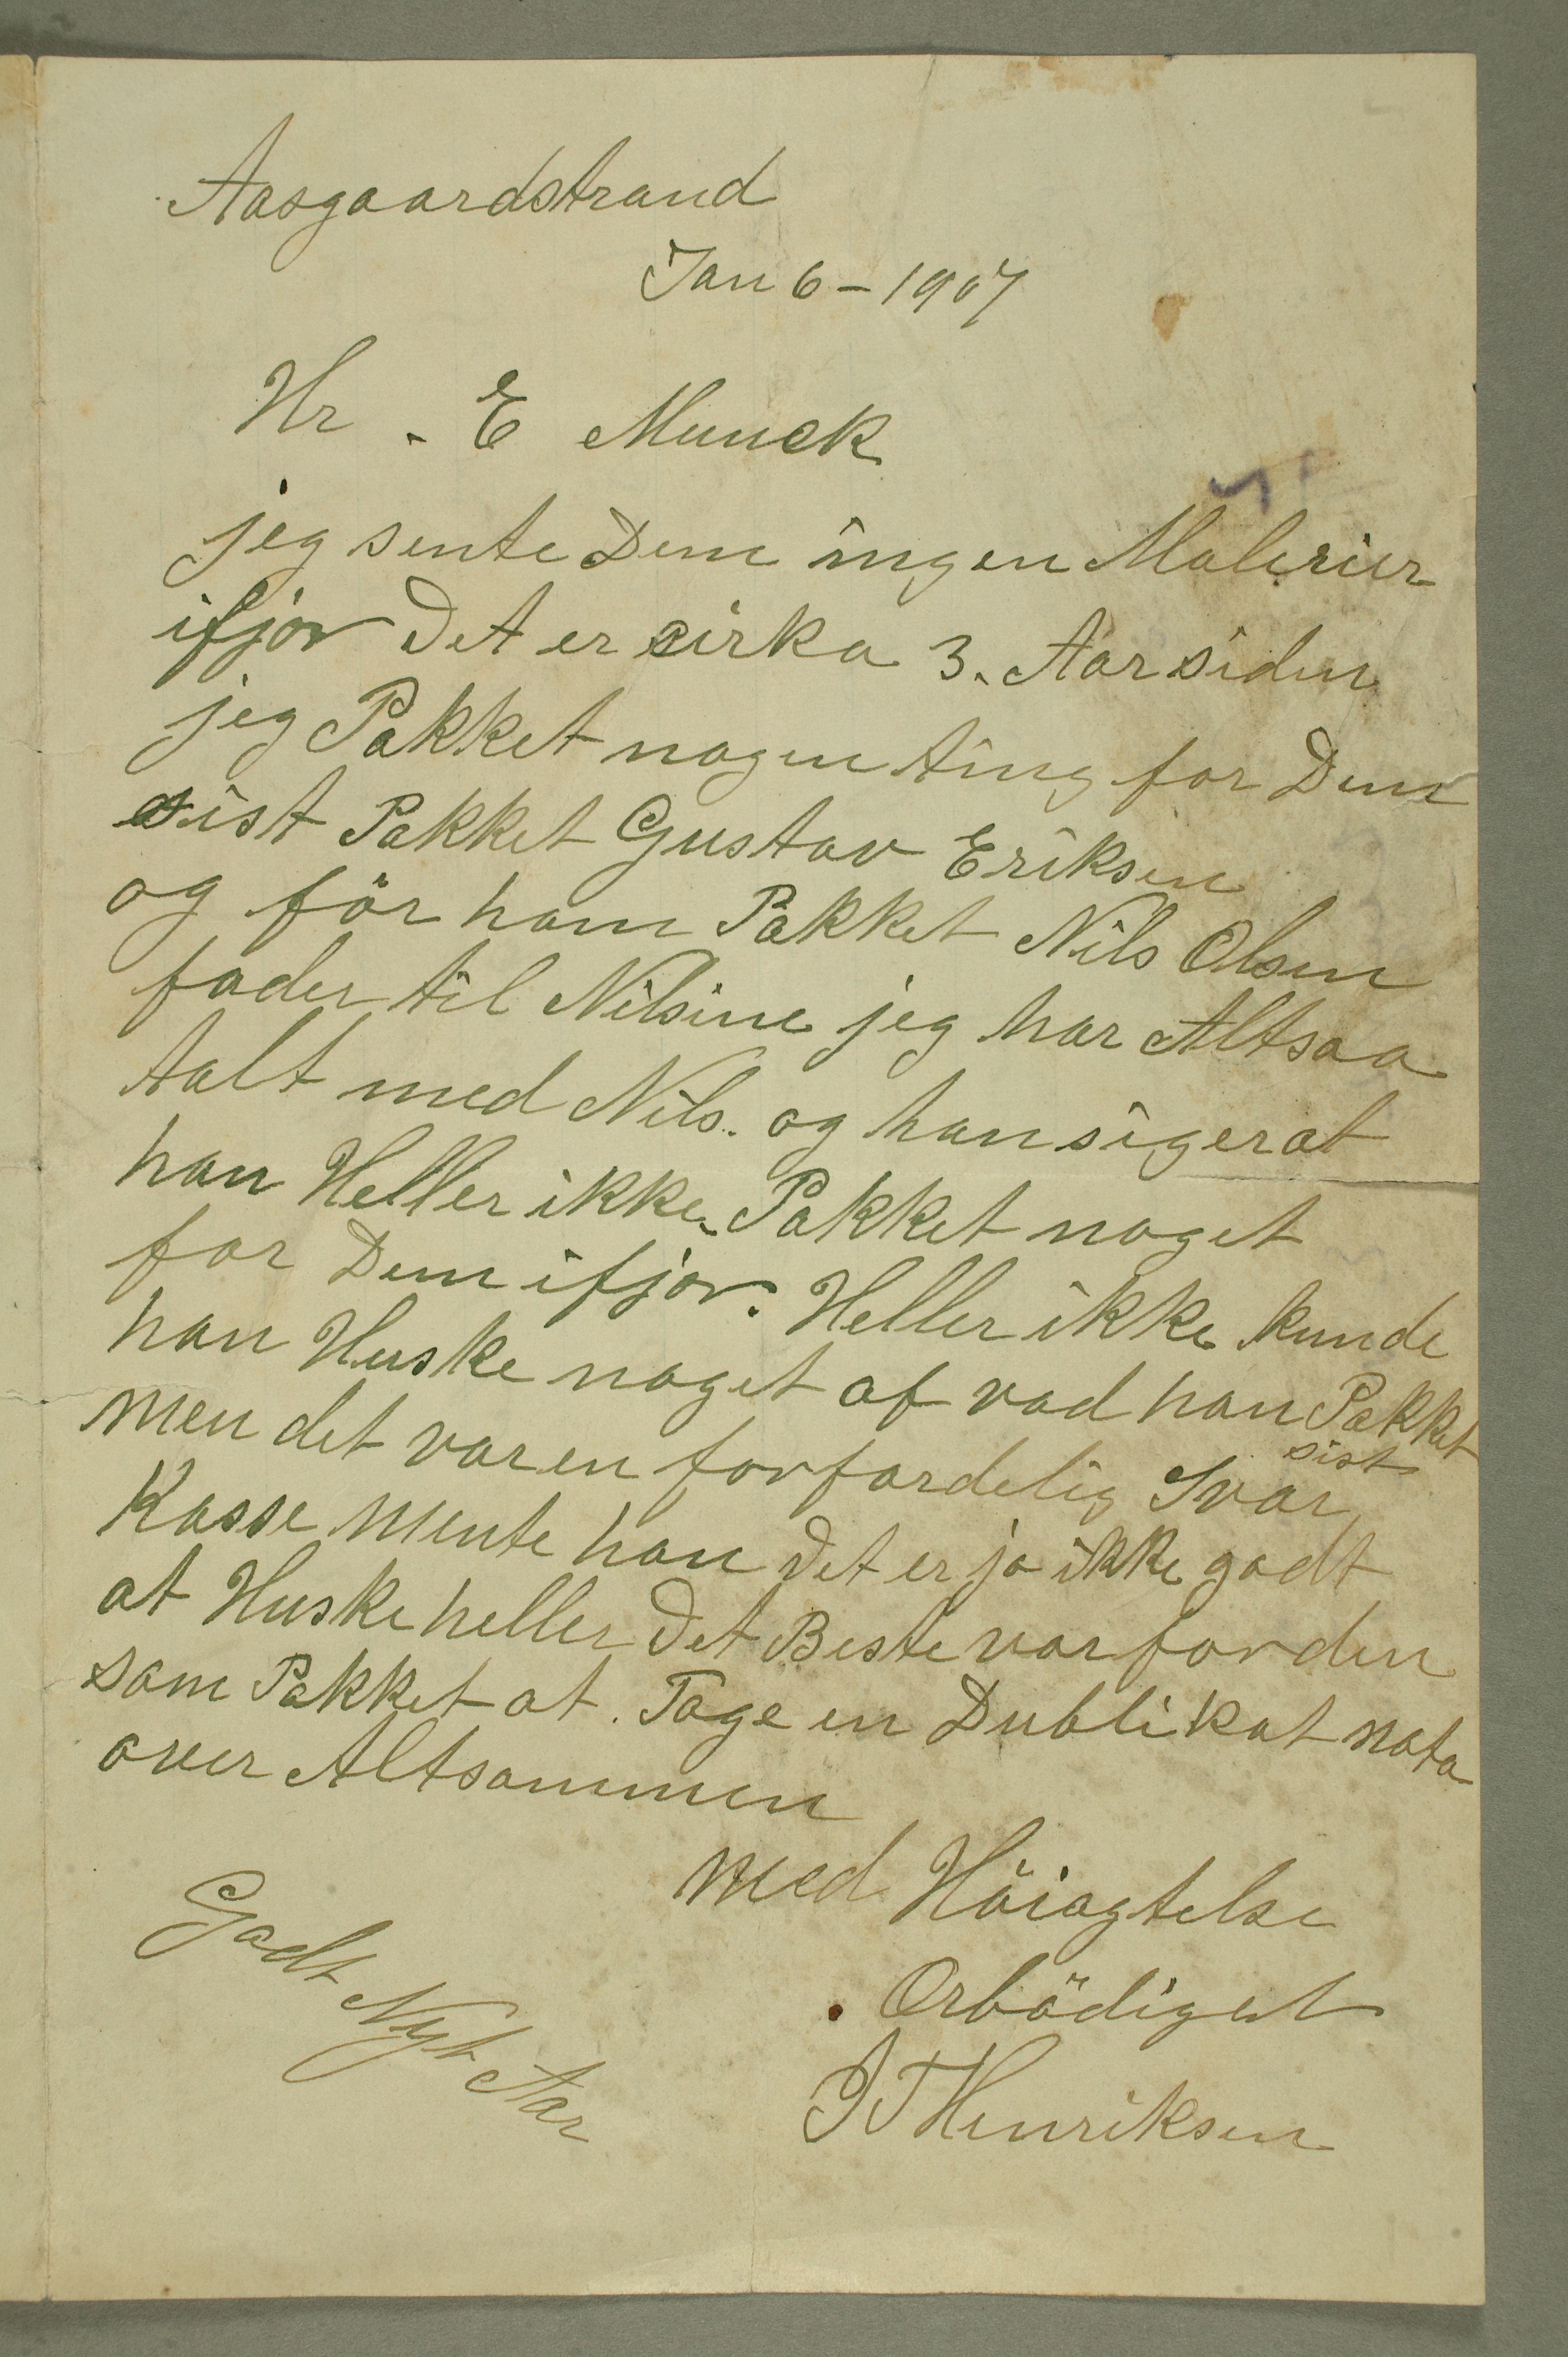 Aasgaardstrand
Jan 6 – 1907
Hr. E Munck
jeg sente Dem ingen Malerier
ifjor Det er cirka 3. Aar siden
jeg Pakket nogen ting for Dem
sist Pakket Gustav Eriksen
og för ham Pakket Nils Olsen
fader til Nilsine jeg har Altsaa
talt med Nils. og han siger at
han Heller ikke Pakket noget
for Dem ifjor. Heller ikke kunde
han Huske noget af vad han Pakket
sist
men det var en forfardelig Svar
Kasse mente han Det er jo ikke godt
at Huske heller Det Beste var for den
som Pakket at Tage en Dublikat nota
over Altsammen
med Höiagtelse
Orbödigest
J T Henriksen
Godt Nyt Aar